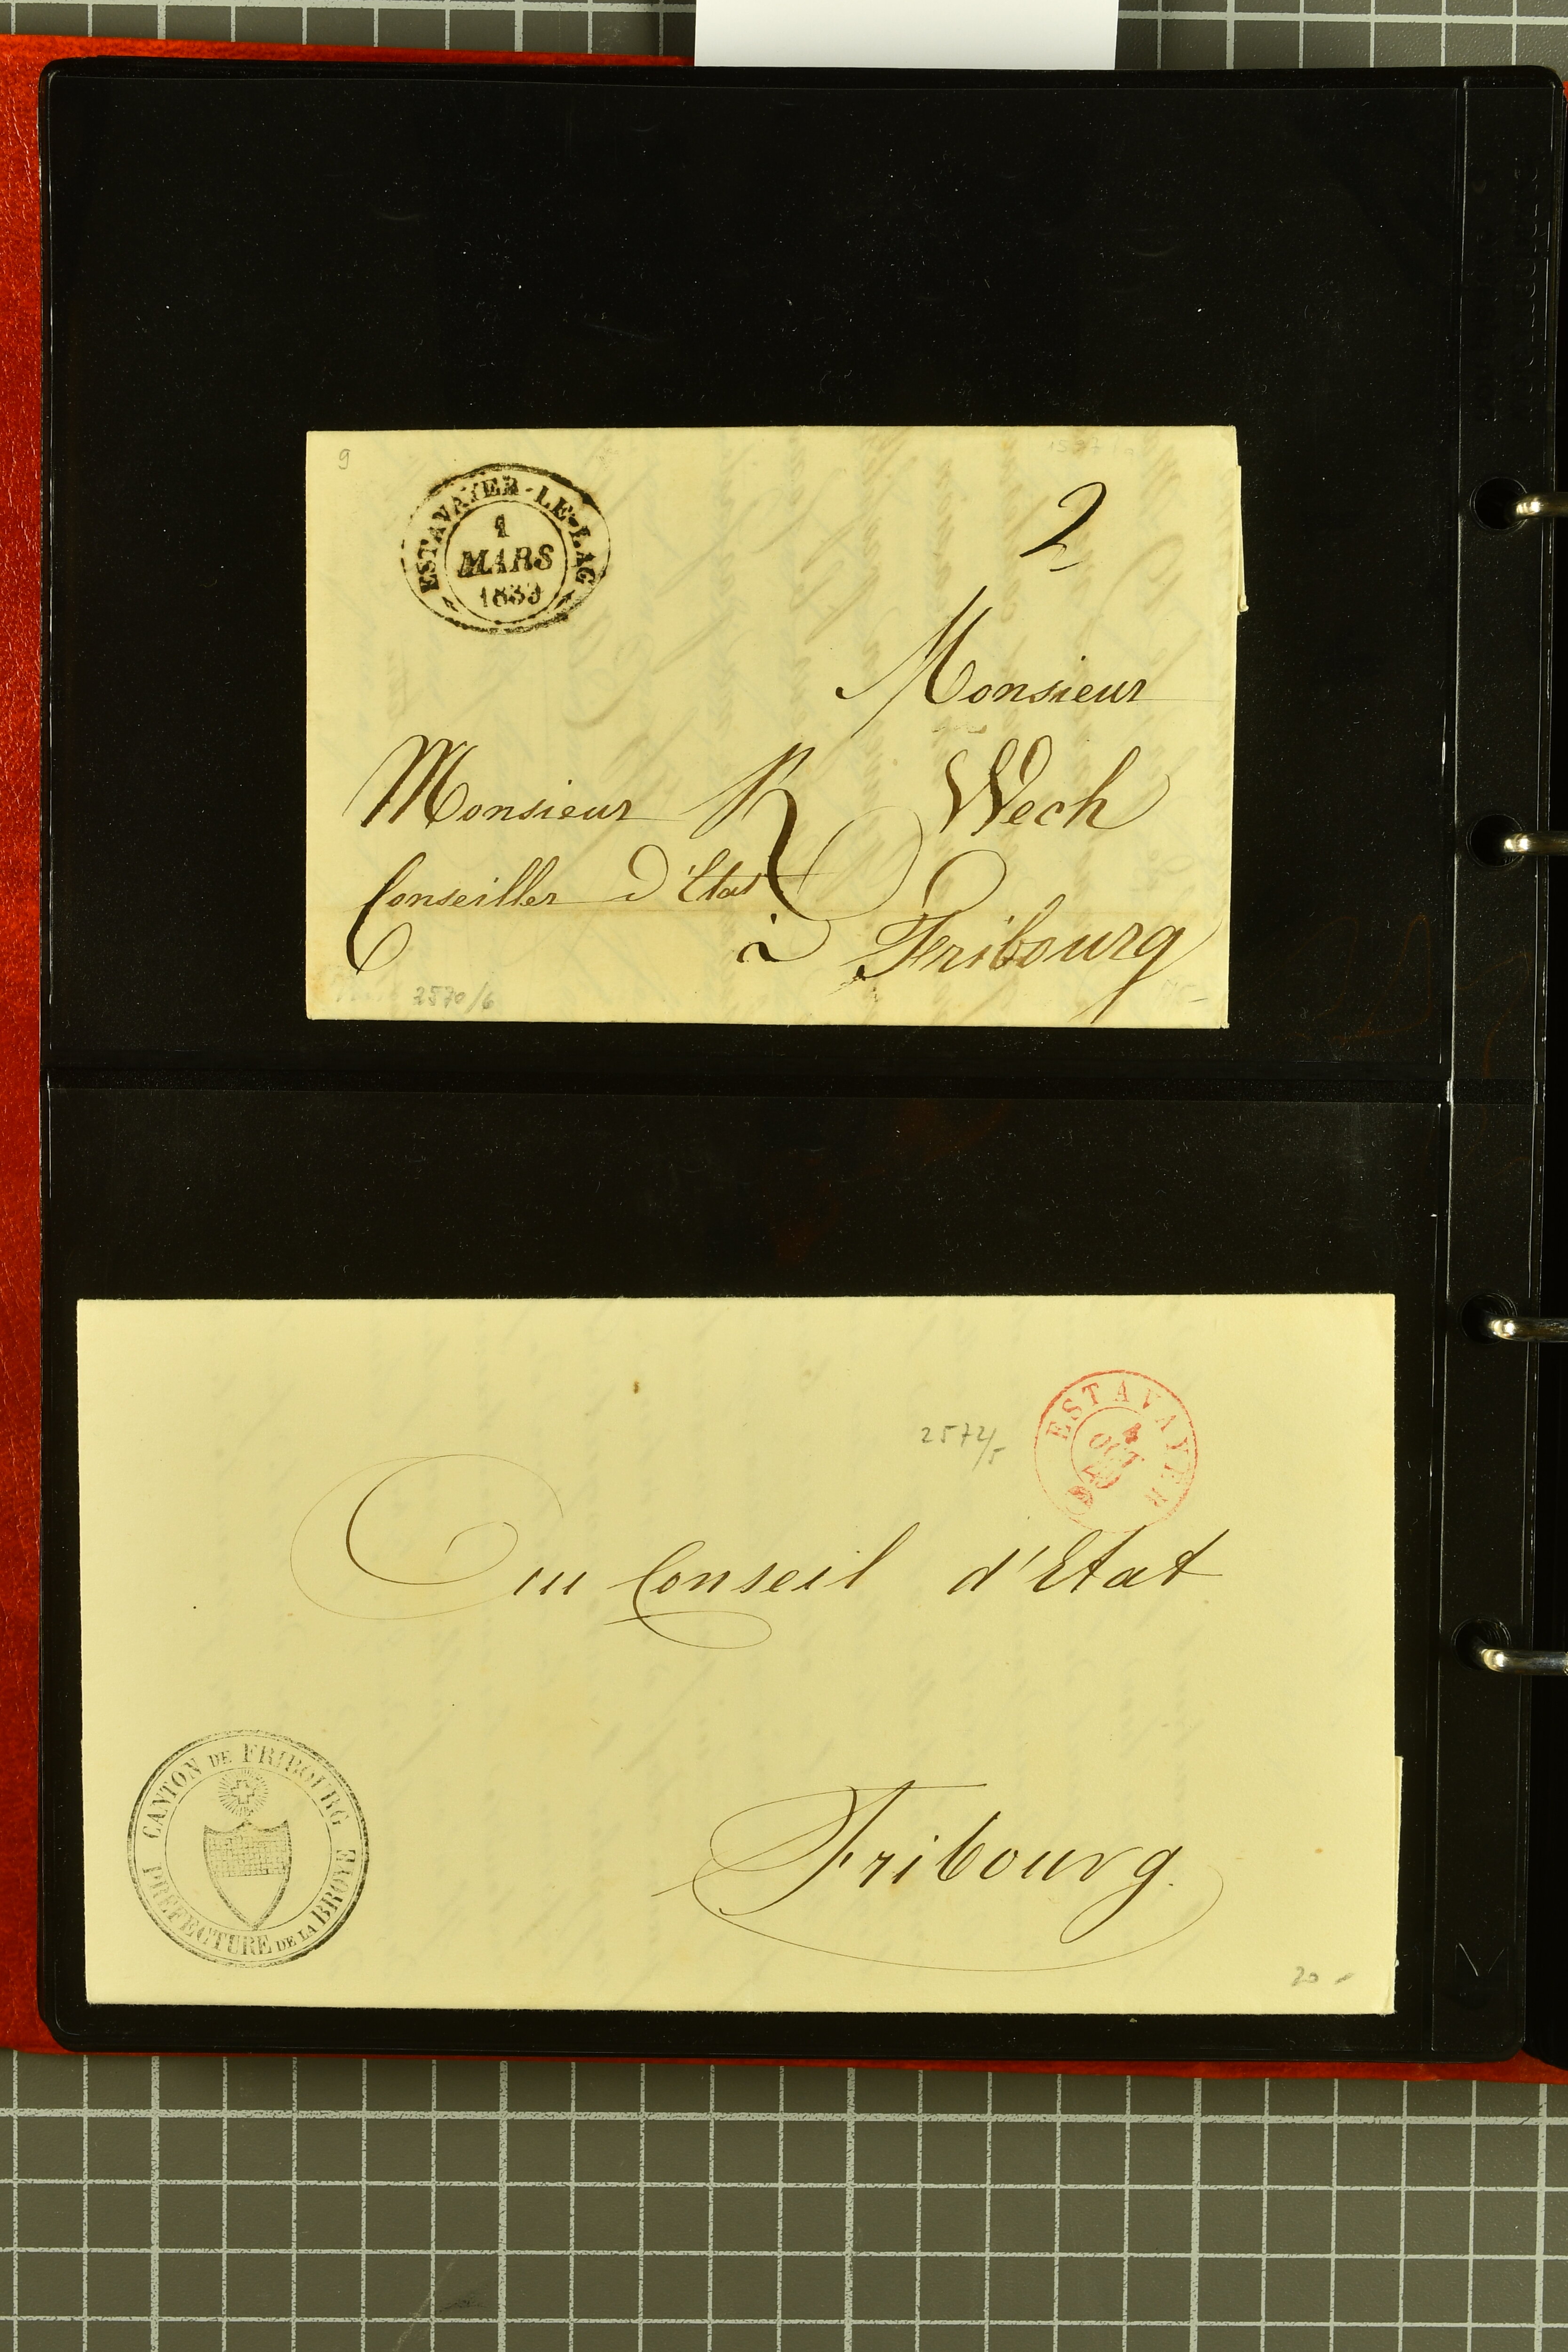 9
ESTAVAYER-LE-LAC
1
MARS
1833
2
Monsieur
Monsieur R Wech
Conseiller d'Etat
à Fribourg
2570/6
ESTAVAYER
4
OCT
49
2572/5
Au Conseil d'Etat
Fribourg.
CANTON DE FRIBOURG
PRÉFECTURE DE LA BROYE
20 -